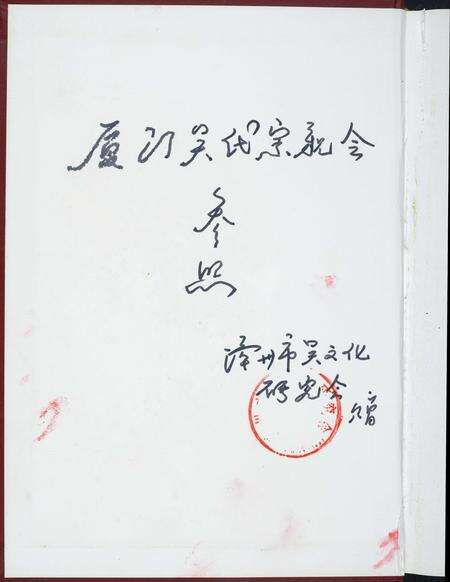 厦门吴氏宗亲会
参
照
漳州市吴文化
研究会
赠